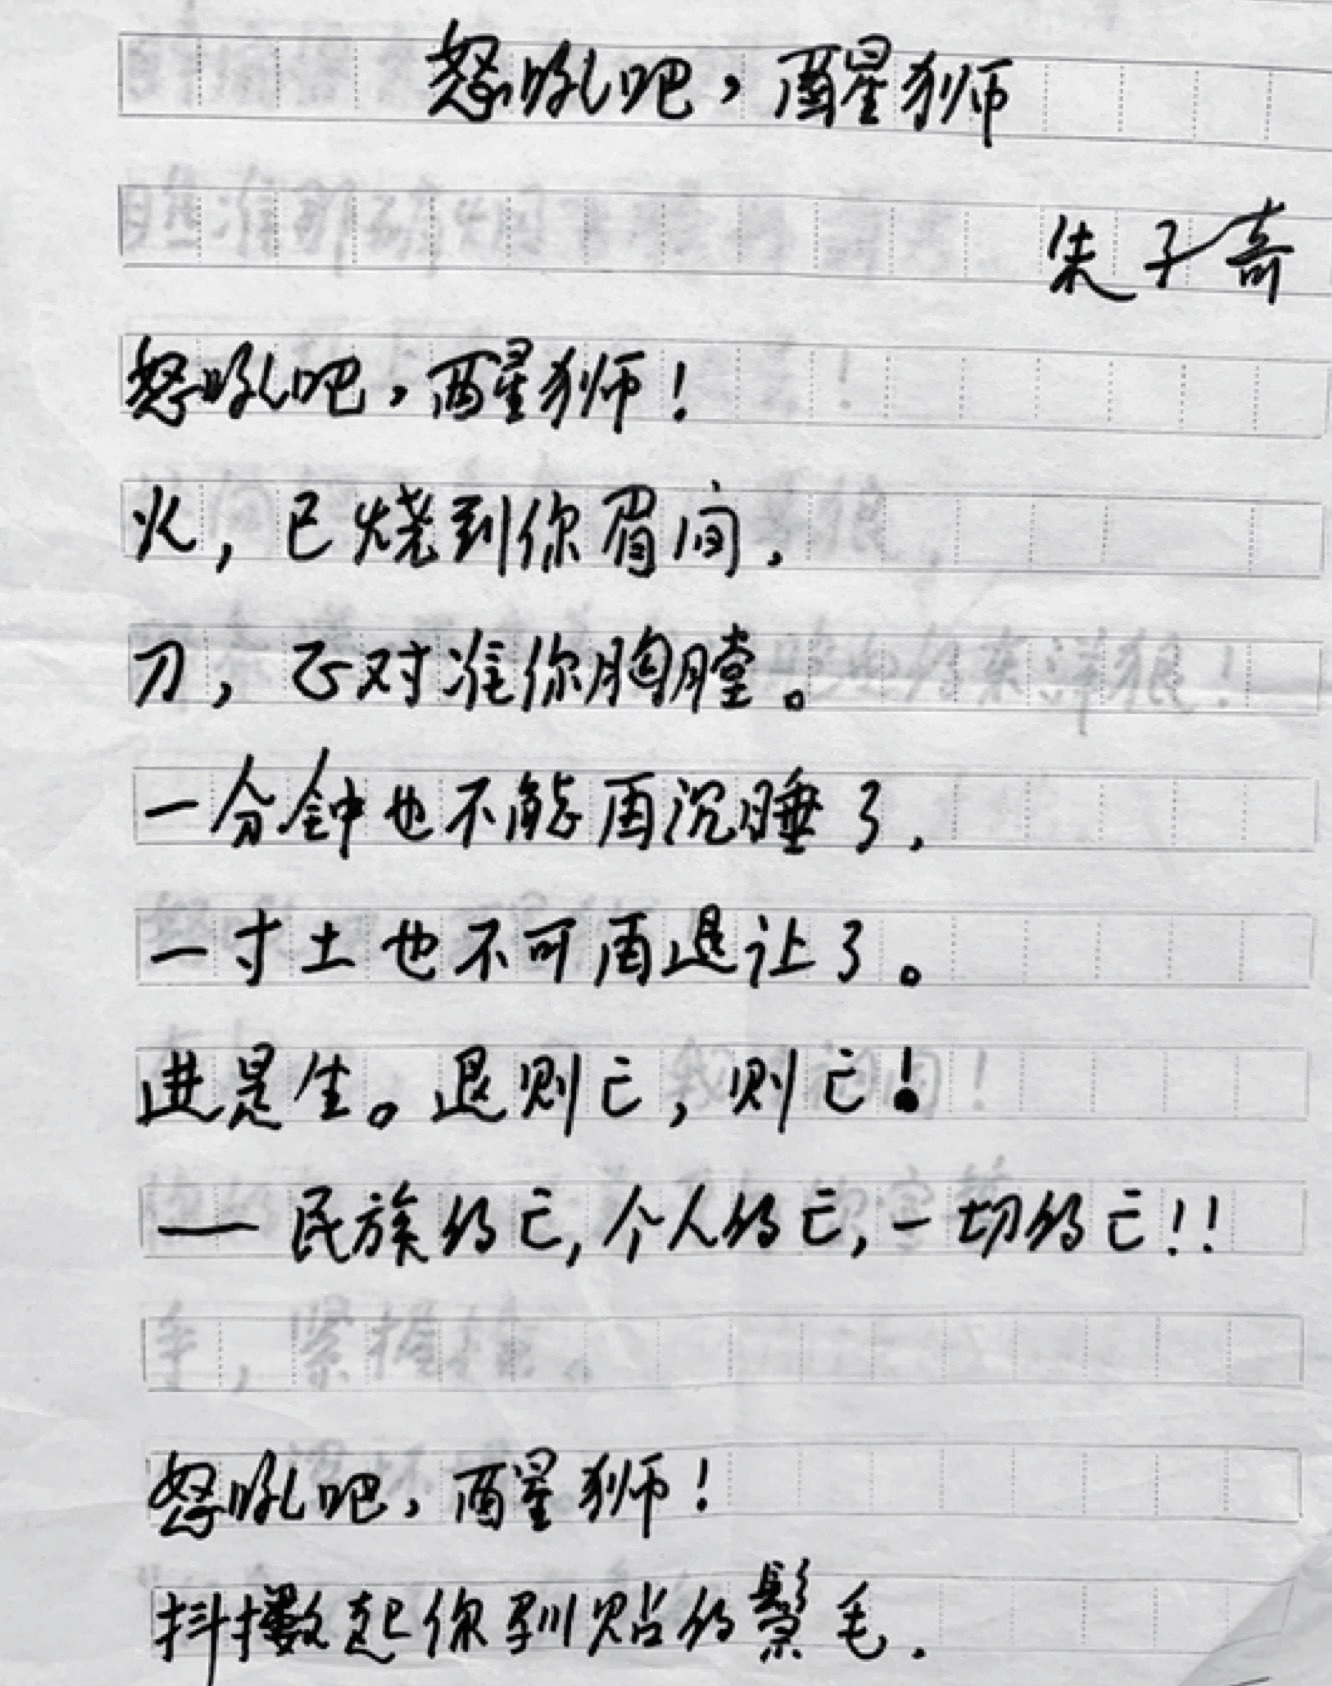 怒吼吧，醒狮
朱子奇
怒吼吧，醒狮！
火，已烧到你眉间，
刀，正对准你胸膛。
一分钟也不能再沉睡了，
一寸土也不可再退让了。
进是生。退则亡，则亡！
——民族的亡，个人的亡，一切的亡！！
怒吼吧，醒狮！
抖擞起你驯贴的鬃毛，